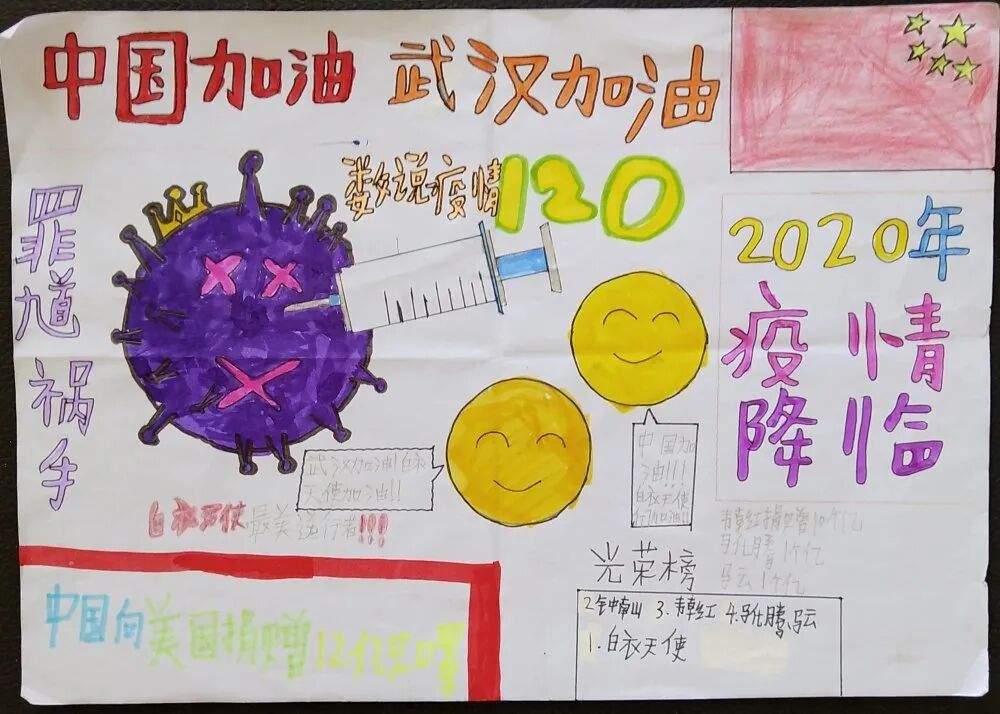 中国加油 武汉加油
数说疫情120
罪馗祸手
2020年
疫情
降临
武汉加油!白衣
天使加油!!
中国加
油!!!
白衣天使
加油!!
白衣天使最美逆行者!!!
韩红捐赠10个亿
马化腾1个亿
马云1个亿
光荣榜
2钟南山 3.韩红 4.马化腾,马云
1.白衣天使
中国向美国捐赠12亿只口罩